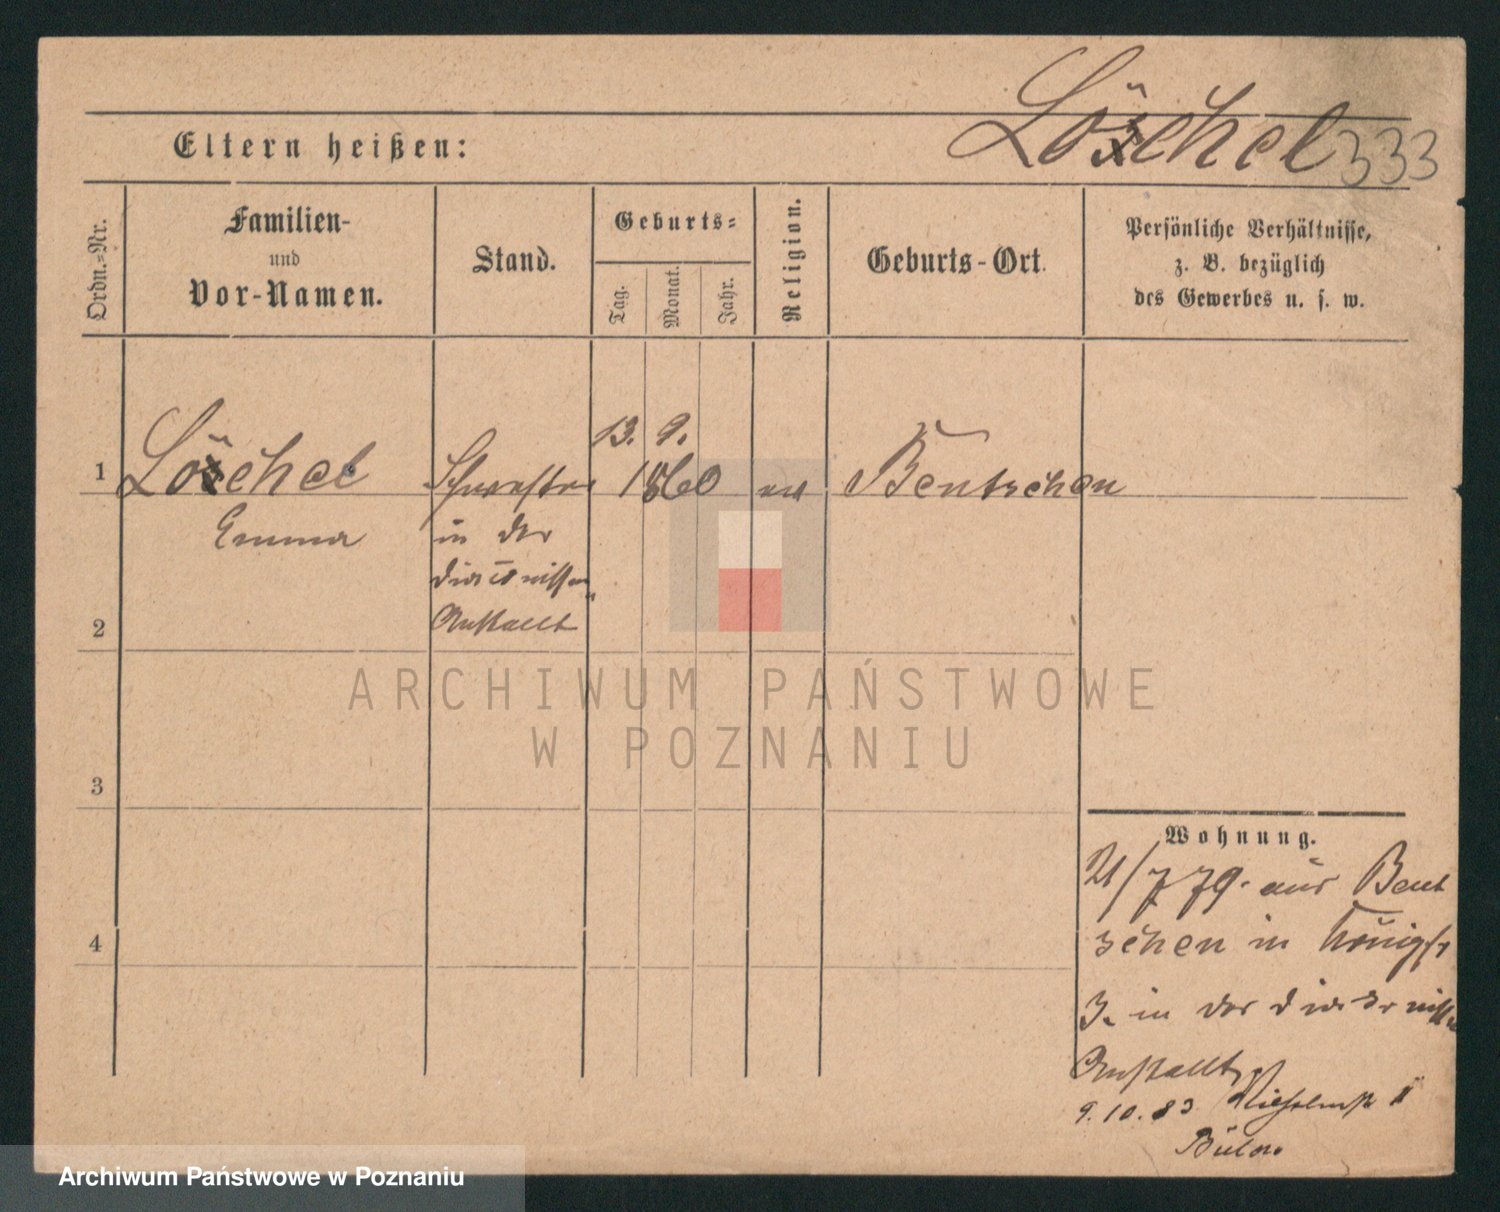 Löschel 333
Eltern heißen:
Ordn.-Nr.
Familien-
und
Vor-Namen.
Stand.
Geburts-
Tag.
Monat.
Jahr.
Religion.
Geburts-Ort.
Persönliche Verhältnisse,
z. B. bezüglich
des Gewerbes u. s. w.
13. 9.
1 Löschel Schwester 1860 ev Bentschen
Emma in der
Diaconissen
Anstallt
2
ARCHIWUM PAŃSTWOWE
W POZNANIU
3
Wohnung.
21/7 79. aus Bent
schen in Königstr
3. in der Diaconissen
4
Anstallt
9. 10. 83
Bülow
Archiwum Państwowe w Poznaniu